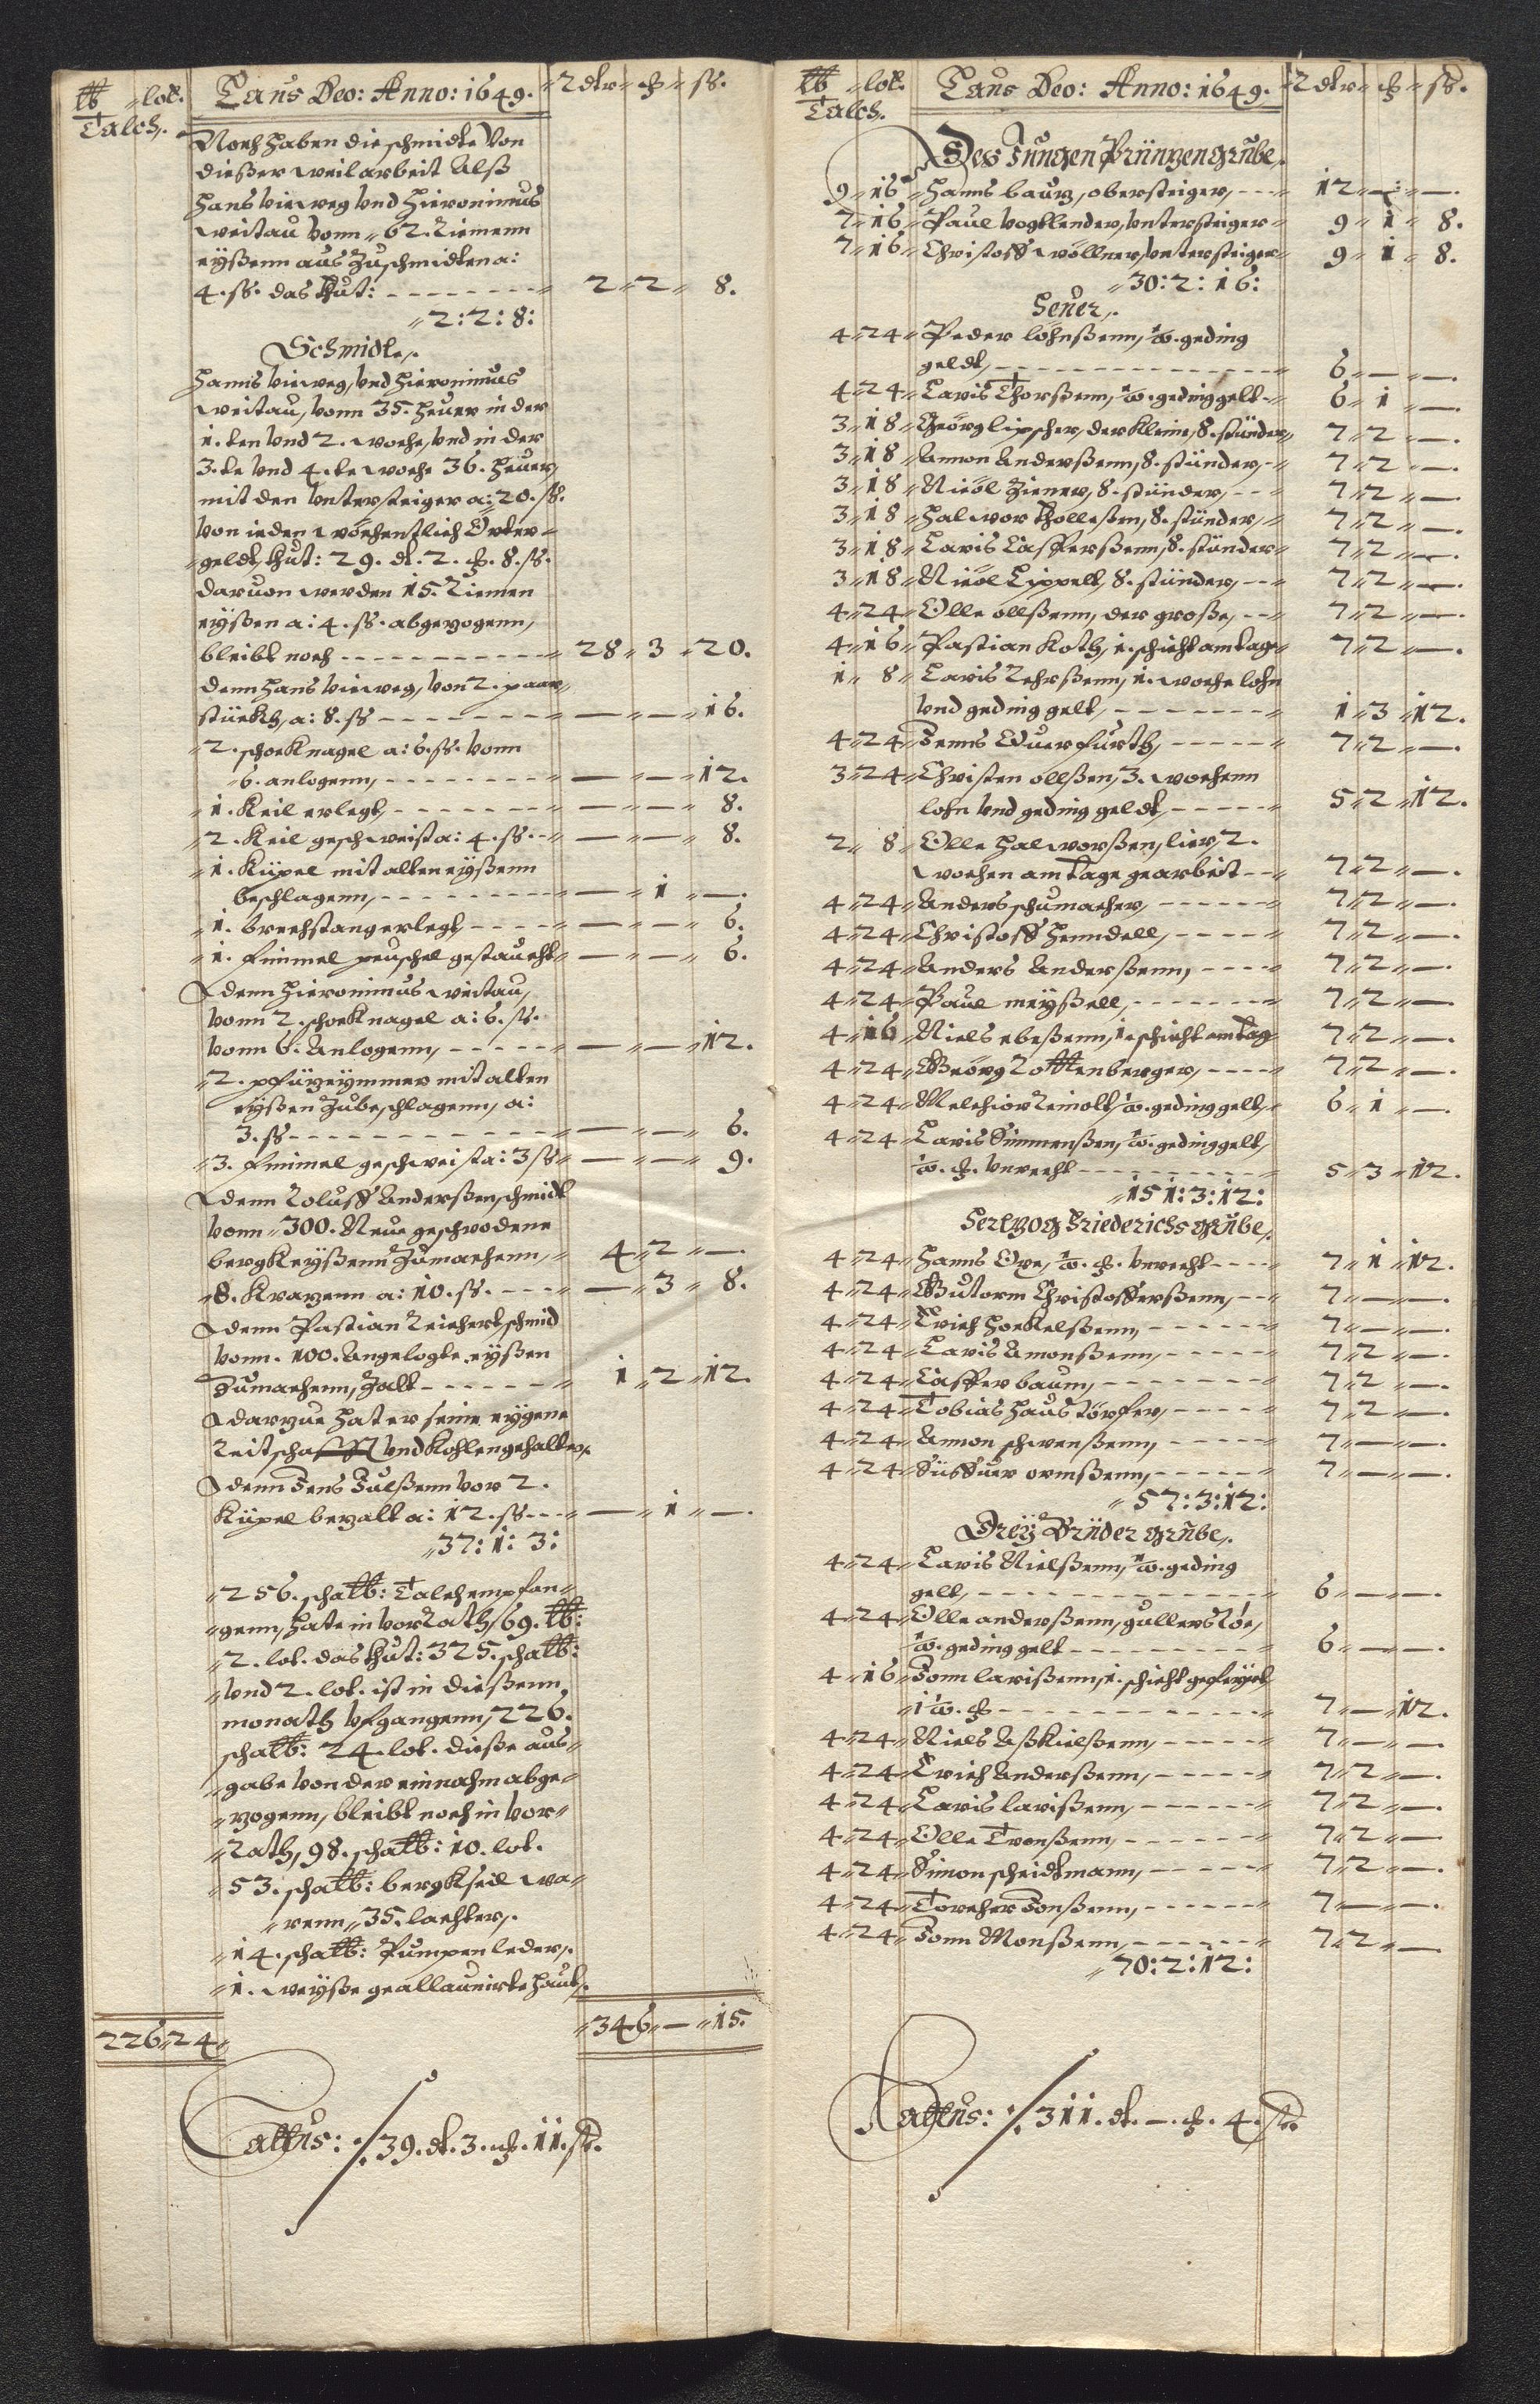 ℔ lot. Laus Deo: Anno: 1649. Rdlr ß.
Talch.
Noch haben die schmidte Von
dießer weil arbeit Alß
Hans vieweg Vnd Hieronimus
weitau Vonn 62. Riemenn
eyßenn aus Zuschmidten a:
4. ß. das thut: 2 2 8.
2: 2: 8:
Schmidte,
Hanns vieweg, Vnd Hieronimus
weitau, Vonn 35. Heuer in der
1. ten Vnd 2. woche, Vnd in der
3. te Vnd 4. te woche 36. Heuer,
mit den Vntersteiger a: 20. ß.
Von ieden wöchentlich Orter
geldt, thut: 29. dl. 2. 8. ß.
daruon werden 15. Riemen
eyßen a: 4. ß. abgezogenn,
bleibt noch 28 3 20.
denn Hans vieweg, Von 2. paar
stückh, a: 8. ß — — 16.
2. schock nagel a: 6. ß. Vonn
6. anlogenn, — — 12.
1. Keil erlegt, — — 8.
2. Keil geschweist a: 4. ß. — — 8.
1. Küpel mit alten eyßenn
beschlagenn, — 1 —.
1. brechstang erlegt, — — 6.
1. fimmel peuschel gestaucht — — 6.
denn Hieronimus weitau,
Vonn 2. schock nagel a: 6. ß.
Vonn 6. Anlogenn, — — 12.
2. pfüzeymmer mit alten
eyßen Zubeschlagenn, a:
3. ß — — 6.
3. fimmel geschweist a: 3 ß — — 9.
denn Roluff Anderßen, schmidt
Vonn 300. Neue geschrodene
bergkeyßenn Zumachenn, 4 2 —.
8. Krazenn a: 10. ß. — 3 8.
denn Pastian Reichert, schmid
Vonn. 100. Angelogte eyßen
Zumachenn, Zalt 1 2 12.
darzue hat er seine eygene
Reitschafft Vnd Kohlen gehalten,
denn Jens Julßenn Vor 2.
Küpel bezalt a: 12. ß — 1 —.
37: 1: 3:
256. scha℔: Talch empfan
genn, hate in Vorrath, 69. ℔:
2. lot. das thut: 325. scha℔:
Vnd 2. lot. ist in dießenn
monath Vfgangenn, 226.
scha℔: 24. lot. dieße aus
gabe Von der einnahm abge
zogenn, bleibt noch in Vor
Rath, 98. scha℔: 10. lot.
53. scha℔: bergkseil wa
renn 35. lachter,
14. scha℔: Pumpen leder,
1. weyße geallaunirte Haut,
226 24 346 — 15.
Lattus: ./. 39. dl. 3. 11. ß.
℔ lot. Laus Deo: Anno: 1649. Rdlr ß.
Talch.
Des Jungen Printzen grube,
9 16 Hanns baur, obersteiger, 12 — —.
7 16 Paul Vogtlender, Vntersteiger 9 1 8.
7 16 Christoff wöllner, Vntersteiger 9 1 8.
30: 2: 16:
Heuer,
4 24 Peder lohnßenn, geding
geldt, 6 — —.
4 24 Laris Thorßenn, geding gelt 6 1 —.
3 18 Geörg lipscher, der Kleine, 8. stünder, 7 2 —.
3 18 Amon Anderßenn, 8. stünder, 7 2 —.
3 18 Nicöl Ziener, 8. stünder, 7 2 —.
3 18 Halwor Tholleßen, 8. stünder, 7 2 —.
3 18 Laris Casperßenn, 8. stünder 7 2 —.
3 18 Nicöl Lippelt, 8. stünder, 7 2 —.
4 24 Olle ollßenn, der große, 7 2 —.
4 16 Pastian Koth, 1. schicht am tage 7 2 —.
1 8 Laris Rehrßenn, 1. woche lohn
Vnd geding gelt, 1 3 12.
4 24 Jenns Querfurth, 7 2 —.
3 24 Christen ollßen, 3. wochenn
lohn Vnd geding geldt, 5 2 12.
2 8 Olle Halworßen, lier, 2.
wochen am tage gearbeit 7 2 —.
4 24 Anders schumacher, 7 2 —.
4 24 Christoff Henndell, 7 2 —.
4 24 Anders Anderßenn, 7 2 —.
4 24 Paul meyßell, 7 2 —.
4 16 Niels ebeßenn, 1 schicht am tag 7 2 —.
4 24 Geörg Rottenberger, 7 2 —.
4 24 Melchior Reinolt, geding gelt, 6 1 —.
4 24 Laris Simmenßen, geding gelt,
verecht 5 3 12.
151: 3: 12:
Hertzog Friederichs grube,
4 24 Hanns Oxe, verecht 7 1 12.
4 24 Gutorm Christofferßenn, 7 — —.
4 24 Erich Hockelßenn, 7 — —.
4 24 Laris Amonßenn, 7 2 —.
4 24 Casper baum, 7 2 —.
4 24 Tobias Hausdörfer, 7 2 —.
4 24 Amon schwenßenn, 7 — —.
4 24 ormßenn, 7 — —.
57: 3: 12:
Drey Brüder grube,
4 24 Laris Nielßenn, geding
gelt, 6 — —.
4 24 Olle anderßenn, gullers Röe,
geding gelt 6 — —.
4 16 Jonn larißenn, 1. schicht gefeyert
1 7 — 12.
4 24 Niels Aßkielßenn, 7 — —.
4 24 Erich Anderßenn, 7 2 —.
4 24 Laris larißenn, 7 2 —.
4 24 Olle Tronßenn, 7 2 —.
4 24 Simon scheidtmann, 7 2 —.
4 24 Torcher Jonßenn, 7 — —.
4 24 Jonn Monßenn, 7 2 —
70: 2: 12:
Lattus: ./. 311. dl. —. 4. ß